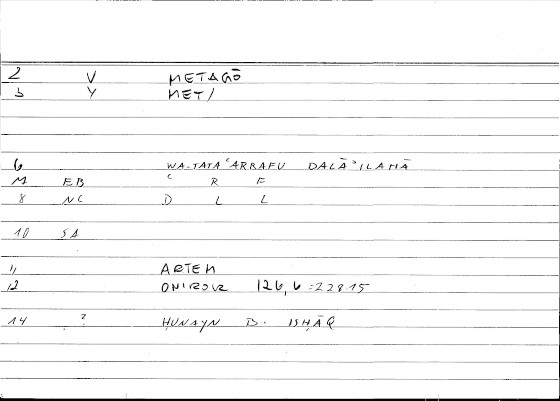 2 V METAGŌ
3 Y MET/
6 WA-TATAʿARRAFU DALĀʾILAHĀ
M EB ʿ R F
8 NC D L L
10 SA
11 ARTEM
12 ONIROCR 126,6=228.15
14 ? ḤUNAYN B. ISḤĀQ